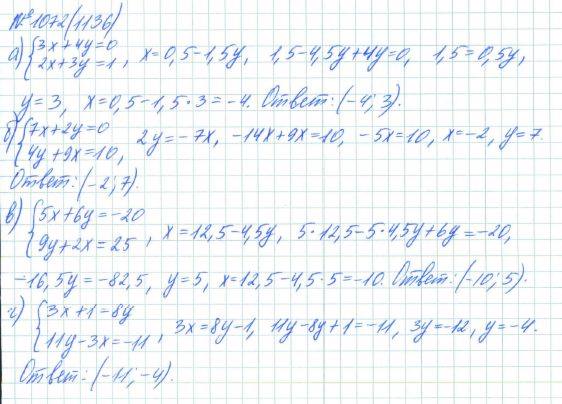 №1072(1136)
а) {3x+4y=0
2x+3y=1, x=0,5-1,5y, 1,5-4,5y+4y=0, 1,5=0,5y,
y=3, x=0,5-1,5·3=-4. Ответ: (-4; 3).
б) {7x+2y=0
4y+9x=10, 2y=-7x, -14x+9x=10, -5x=10, x=-2, y=7.
Ответ: (-2; 7).
в) {5x+6y=-20
9y+2x=25, x=12,5-4,5y, 5·12,5-5·4,5y+6y=-20,
-16,5y=-82,5, y=5, x=12,5-4,5·5=-10. Ответ: (-10; 5).
г) {3x+1=8y
11y-3x=-11, 3x=8y-1, 11y-8y+1=-11, 3y=-12, y=-4.
Ответ: (-11; -4).